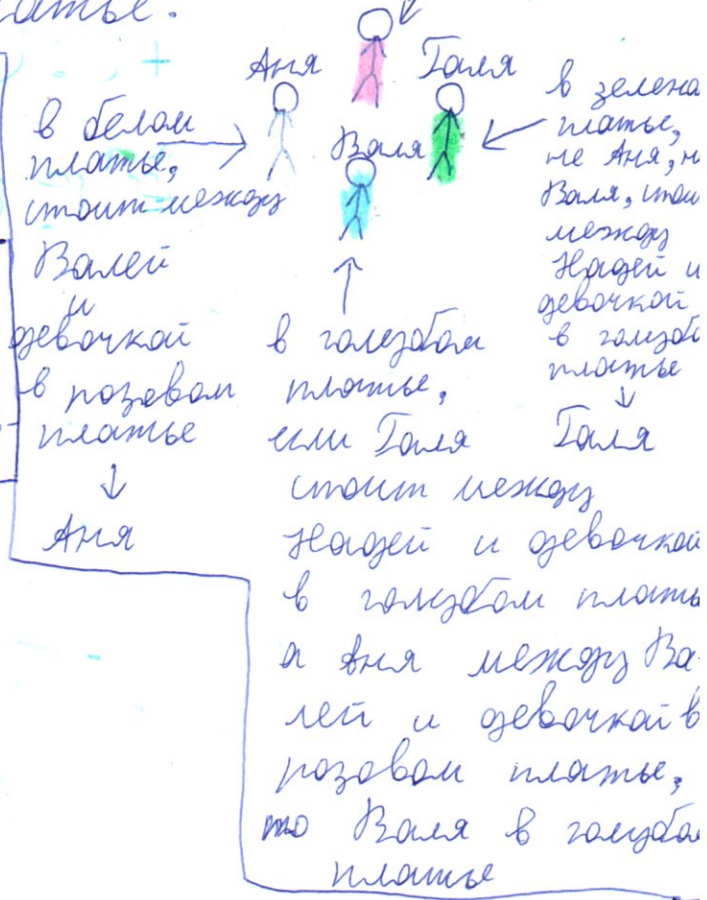 платье.
Аня
Галя
Валя
в белом
платье,
стоит между
Валей
и
девочкой
в розовом
платье
Аня
в голубом
платье,
если Галя
стоит между
Надей и девочкой
в голубом плать
а Аня между Ва
лей и девочкой в
розовом платье,
то Валя в голубо
платье
в зелено
платье,
не Аня, н
Валя, стои
между
Надей и
девочкой
в голубо
платье
Галя